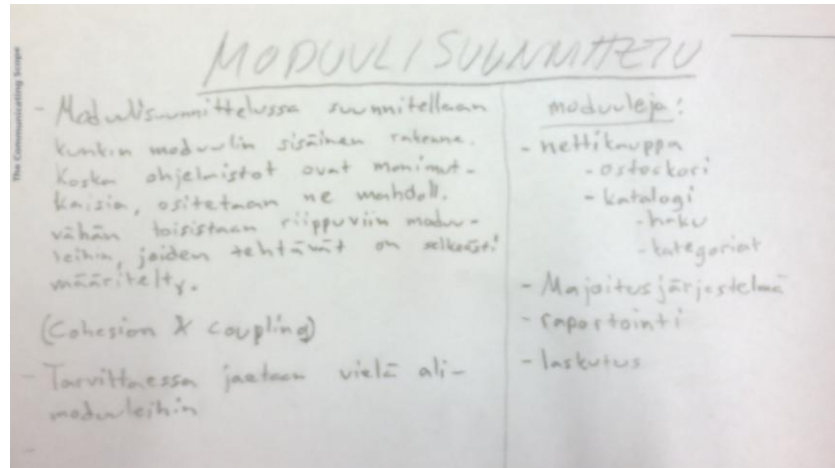 The Communicating Scope
MODUULISUUNNITTELU
- Moduulisuunnittelussa suunnitellaan
kunkin moduulin sisäinen rakenne.
Koska ohjelmistot ovat monimut-
kaisia, ositetaan ne mahdoll.
vähän toisistaan riippuviin moduu-
leihin, joiden tehtävät on selkeästi
määritelty.
(Cohesion & coupling)
- Tarvittaessa jaetaan vielä ali-
moduuleihin
moduuleja:
- nettikauppa
- ostoskori
- katalogi
- haku
- kategoriat
- Majoitusjärjestelmä
- raportointi
- laskutus